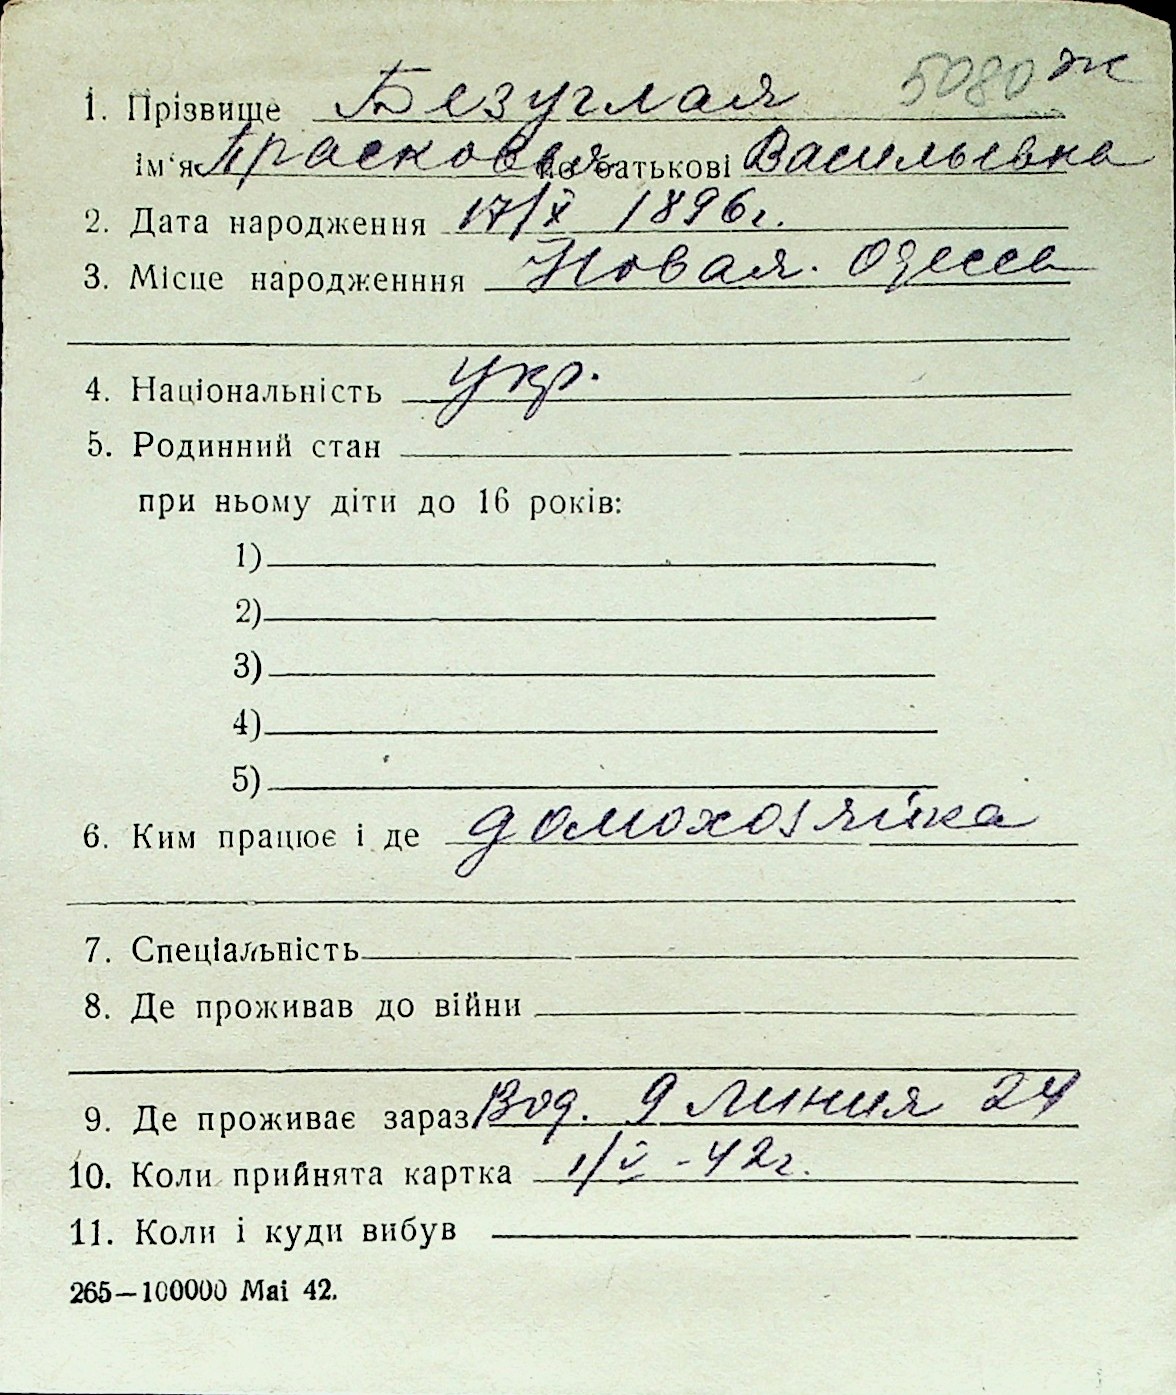 5080 ж
1. Прізвище Безуглая
ім'я Прасковья по батькові Васильевна
2. Дата народження 17/X 1896г.
3. Місце народженння Новая Одесса
4. Національність укр.
5. Родинний стан
при ньому діти до 16 років:
1)
2)
3)
4)
5)
6. Ким працює і де домохозяйка
7. Спеціальність
8. Де проживав до війни
9. Де проживає зараз Вод. 9 линия 24
10. Коли прийнята картка 1/V-42г.
11. Коли і куди вибув
265—100000 Mai 42.